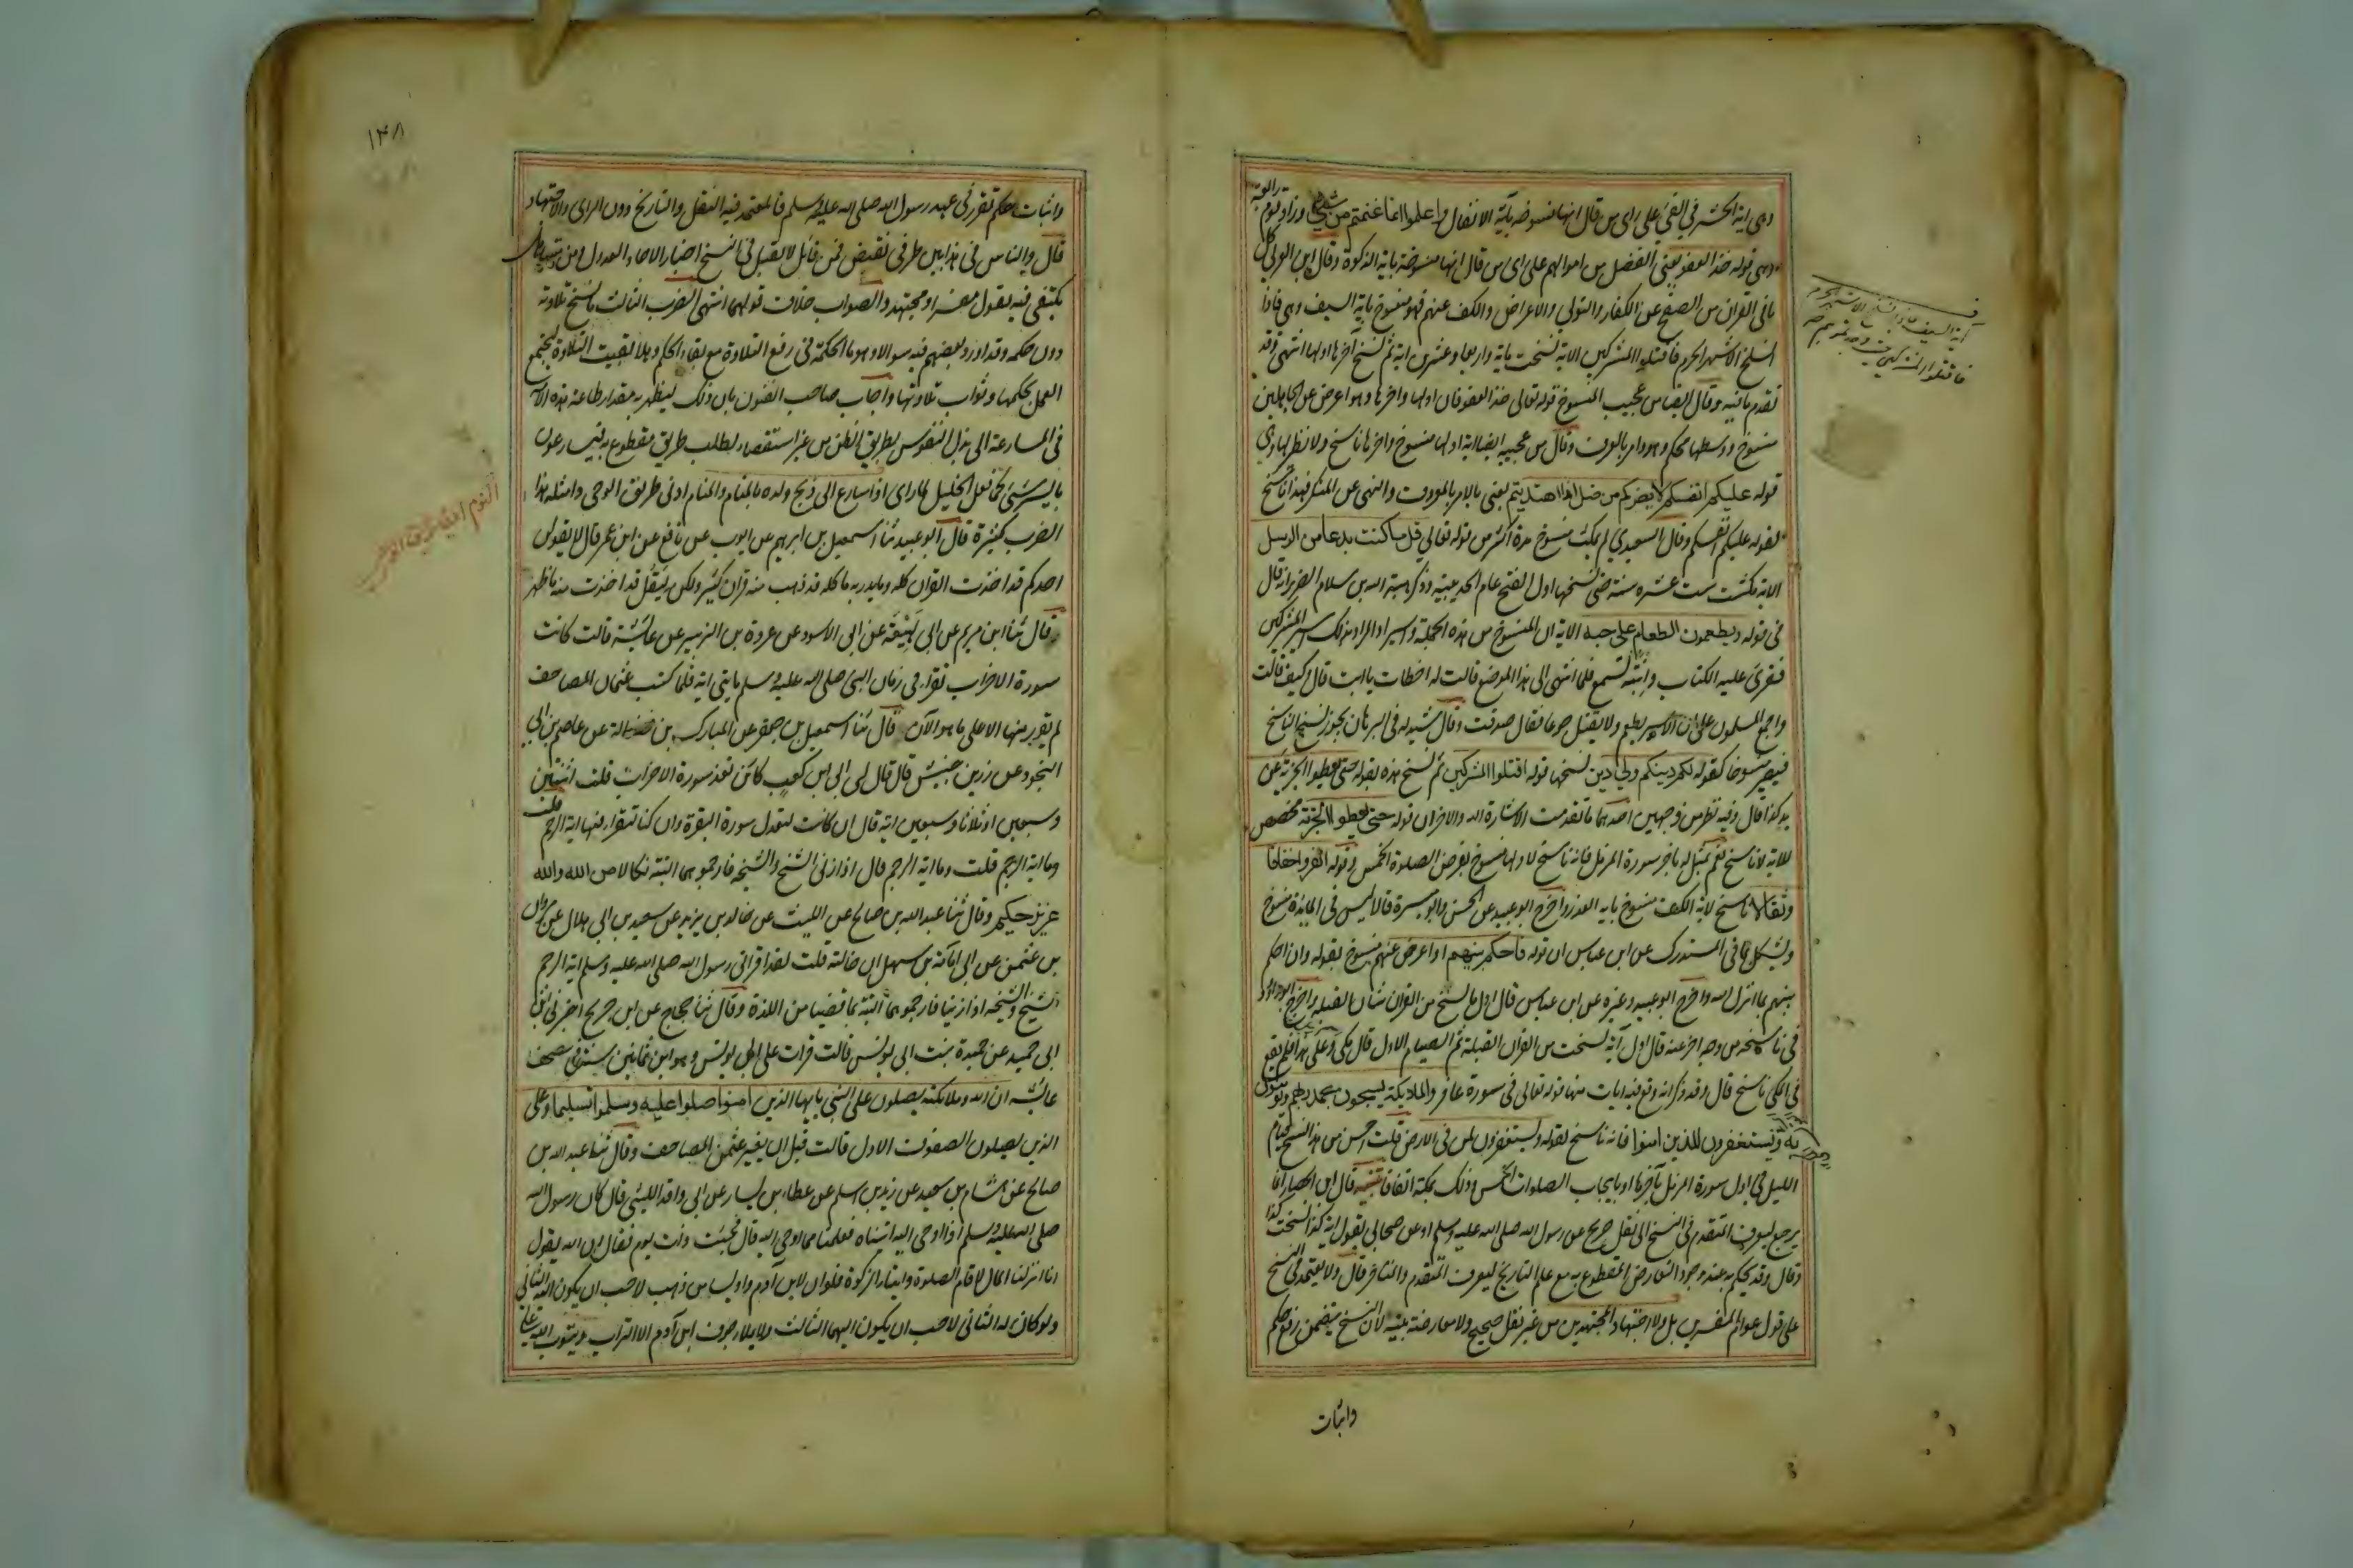 وهى اية الحشر فى الفئ على راى من قال انها منسوخه بآية الانفال واعلموا انما غنمتم من شئ وزاد قوم رابعة
وهى قوله خذ العفو يعنى الفضل من اموالهم على راى من قال انها منسوخة باية الزكوة وقال ابن العربى كل
ما فى القران من الصفح عن الكفار والتولى والاعراض والكف عنهم فهو منسوخ باية السيف وهى فاذا
انسلخ الاشهر الحرم فاقتلوا المشركين الاية نسخت ماية واربعا وعشرين اية ثم نسخ آخرها اولها انتهى وقد
تقدم ما فيه وقال ايضا من عجيب المنسوخ قوله تعالى خذ العفو فان اولها واخرها وهو اعرض عن الجاهلين
منسوخ ووسطها محكم وهو وامر بالعرف وقال من عجيبه ايضا اية اولها منسوخ واخرها ناسخ ولا نظير لها وهى
قوله عليكم انفسكم لا يضركم من ضل اذا اهتديتم يعنى بالامر بالمعروف والنهى عن المنكر فهذا ناسخ
لقوله عليكم انفسكم وقال السعيدى لم يمكث منسوخ مدة اكثر من قوله تعالى قل ما كنت بدعا من الرسل
الاية مكثت ست عشره سنة حتى نسخها اول الفتح عام الحديبية وذكر هبة الله بن سلام الضرير انه قال
فى قوله ويطعمون الطعام على حبه الاية ان المنسوخ من هذه الجملة واسيرا والمراد بذلك اسير المشركين
فقرئ عليه الكتاب وابنته تسمع فلما انتهى الى هذا الموضع قالت له اخطات يا ابت قال وكيف قالت
واجمع المسلمون على ان الاسير يطعم ولا يقتل جوعا فقال صدقت وقال شيدله فى البرهان يجوز نسخ الناسخ
فيصير منسوخا كقوله لكم دينكم ولي دين نسخها قوله اقتلوا المشركين ثم نسخ هذه بقوله حتى يعطوا الجزية عن
يد كذا قال وفيه نظر من وجهين احدهما ما تقدمت الاشارة اليه والاخر ان قوله حتى يعطوا الجزية مخصص
للاية لا ناسخ نعم يمثل له باخر سورة المزمل فانه ناسخ لاولها منسوخ بفرض الصلوة الخمس وقوله انفروا خفافا
وثقالا ناسخ لاية الكف منسوخ باية العذر واخرج ابو عبيد عن الحسن وابو ميسرة قالا ليس فى المايدة منسوخ
ويشكل بما فى المستدرك عن ابن عباس ان قوله فاحكم بينهم او اعرض عنهم منسوخ بقوله وان احكم
بينهم بما انزل الله واخرج ابو عبيد وغيره عن ابن عباس قال اول ما نسخ من القران شان القبله واخرج ابو داود
فى ناسخه من وجه اخر عنه قال اول آية نسخت من القران القبلة ثم الصيام الاول قال مكى وعلى هذا فلم يقع
فى المكى ناسخ قال وقد ذكر انه وقع فيه ايات منها قوله تعالى فى سورة غافر والملايكة يسبحون بحمد ربهم ويؤمنون
به ويستغفرون للذين امنوا فانه ناسخ لقوله ويستغفرون لمن فى الارض قلت احسن من هذا نسخ قيام
الليل فى اول سورة المزمل بآخرها او بايجاب الصلوات الخمس وذلك بمكة اتفاقا تنبيه قال ابن الحصار انما
يرجع ليعرف المتقدم فى النسخ الى نقل صريح عن رسول الله صلى الله عليه وسلم او عن صحابى يقول اية كذا نسخت كذا
وقال وقد يحكم به عند وجود التعارض المقطوع به مع علم التاريخ ليعرف المتقدم والمتاخر قال ولا يعتمد فى النسخ
على قول عوام المفسرين بل ولا اجتهاد المجتهدين من غير نقل صحيح ولا معارضة بينه لان النسخ يتضمن رفع حكم
واثبات
آية السيف فاذا انسلخ الاشهر الحرم
فاقتلوا المشركين حيث وجدتموهم
١٣٨
واثبات حكم تقرر فى عهد رسول الله صلى الله عليه وسلم فالمعتمد فيه النقل والتاريخ دون الراى والاجتهاد
قال والناس فى هذا بين طرفى نقيض فمن قائل لا يقبل فى النسخ اخبار الاحاد العدول ومن متساهل
يكتفى فيه بقول مفسر او مجتهد والصواب خلاف قولهما انتهى الضرب الثالث ما نسخ تلاوته
دون حكمه وقد اورد بعضهم فيه سوالا وهو ما الحكمة فى رفع التلاوة مع بقاء الحكم وهلا بقيت التلاوة ليجتمع
العمل بحكمها وثواب تلاوتها واجاب صاحب الفنون بان ذلك ليظهر به مقدار طاعة هذه الامة
فى المسارعة الى بذل النفوس بطريق الظن من غير استفصال لطلب طريق مقطوع به فيسارعون
بايسر شئ كما فعل الخليل لما راى اذ اسارع الى ذبح ولده بالمنام والمنام ادنى طريق الوحى وامثله هذا
الضرب كثيرة قال ابو عبيد ثنا اسمعيل بن ابرهيم عن ايوب عن نافع عن ابن عمر قال لا يقولن
احدكم قد اخذت القران كله وما يدريه ما كله قد ذهب منه قران كثير ولكن ليقل قد اخذت منه ما ظهر
قال ثنا ابن مريم عن ابى لهيعة عن ابى الاسود عن عروة بن الزبير عن عائشة قالت كانت
سورة الاحزاب تقرا فى زمان النبى صلى الله عليه وسلم مايتى اية فلما كتب عثمان المصاحف
لم يقدر منها الا على ما هو الآن قال ثنا اسمعيل بن جعفر عن المبارك بن فضالة عن عاصم بن ابى
النجود عن زر بن حبيش قال قال لى ابى ابن كعب كائن تعد سورة الاحزاب قلت اثنتين
وسبعين او ثلاثا وسبعين اية قال ان كانت لتعدل سورة البقرة وان كنا لنقراء فيها اية الرجم قلت
وما اية الرجم قلت وما اية الرجم قال اذا زنى الشيخ والشيخة فارجموهما البتة نكالا من الله والله
عزيز حكيم وقال ثنا عبد الله بن صالح عن الليث عن خالد بن يزيد عن سعيد بن ابى هلال عن مروان
بن عثمن عن ابى امامة بن سهل ان خالته قلت لقد اقرانى رسول الله صلى الله عليه وسلم اية الرجم
الشيخ والشيخه اذا زنيا فارجموهما البتة بما قضيا من اللذة وقال ثنا حجاج عن ابن جريج اخبرنى ابن
ابى حميد عن حميدة بنت ابى يونس قالت قرات على ابى يونس وهو ابن ثمانين سنة فى مصحف
عايشه ان الله وملائكته يصلون على النبى يايها الذين امنوا صلوا عليه وسلموا تسليما وعلى
الذين يصلون الصفوف الاول قالت قبل ان يغير عثمن المصاحف وقال ثنا عبد الله بن
صالح عن هشام بن سعيد عن زيد بن اسلم عن عطاء بن يسار عن ابى واقد الليثى قال كان رسول الله
صلى الله عليه وسلم اذا اوحى اليه اتيناه فعلمنا مما اوحى اليه قال فجئت ذات يوم فقال ان الله يقول
انا انزلنا المال لاقام الصلوة وايتاء الزكوة فلو ان لابن آدم واديا من ذهب لاحب ان يكون اليه الثانى
ولو كان له الثانى لاحب ان يكون اليهما الثالث ولا يملا جوف ابن آدم الا التراب ويتوب الله على